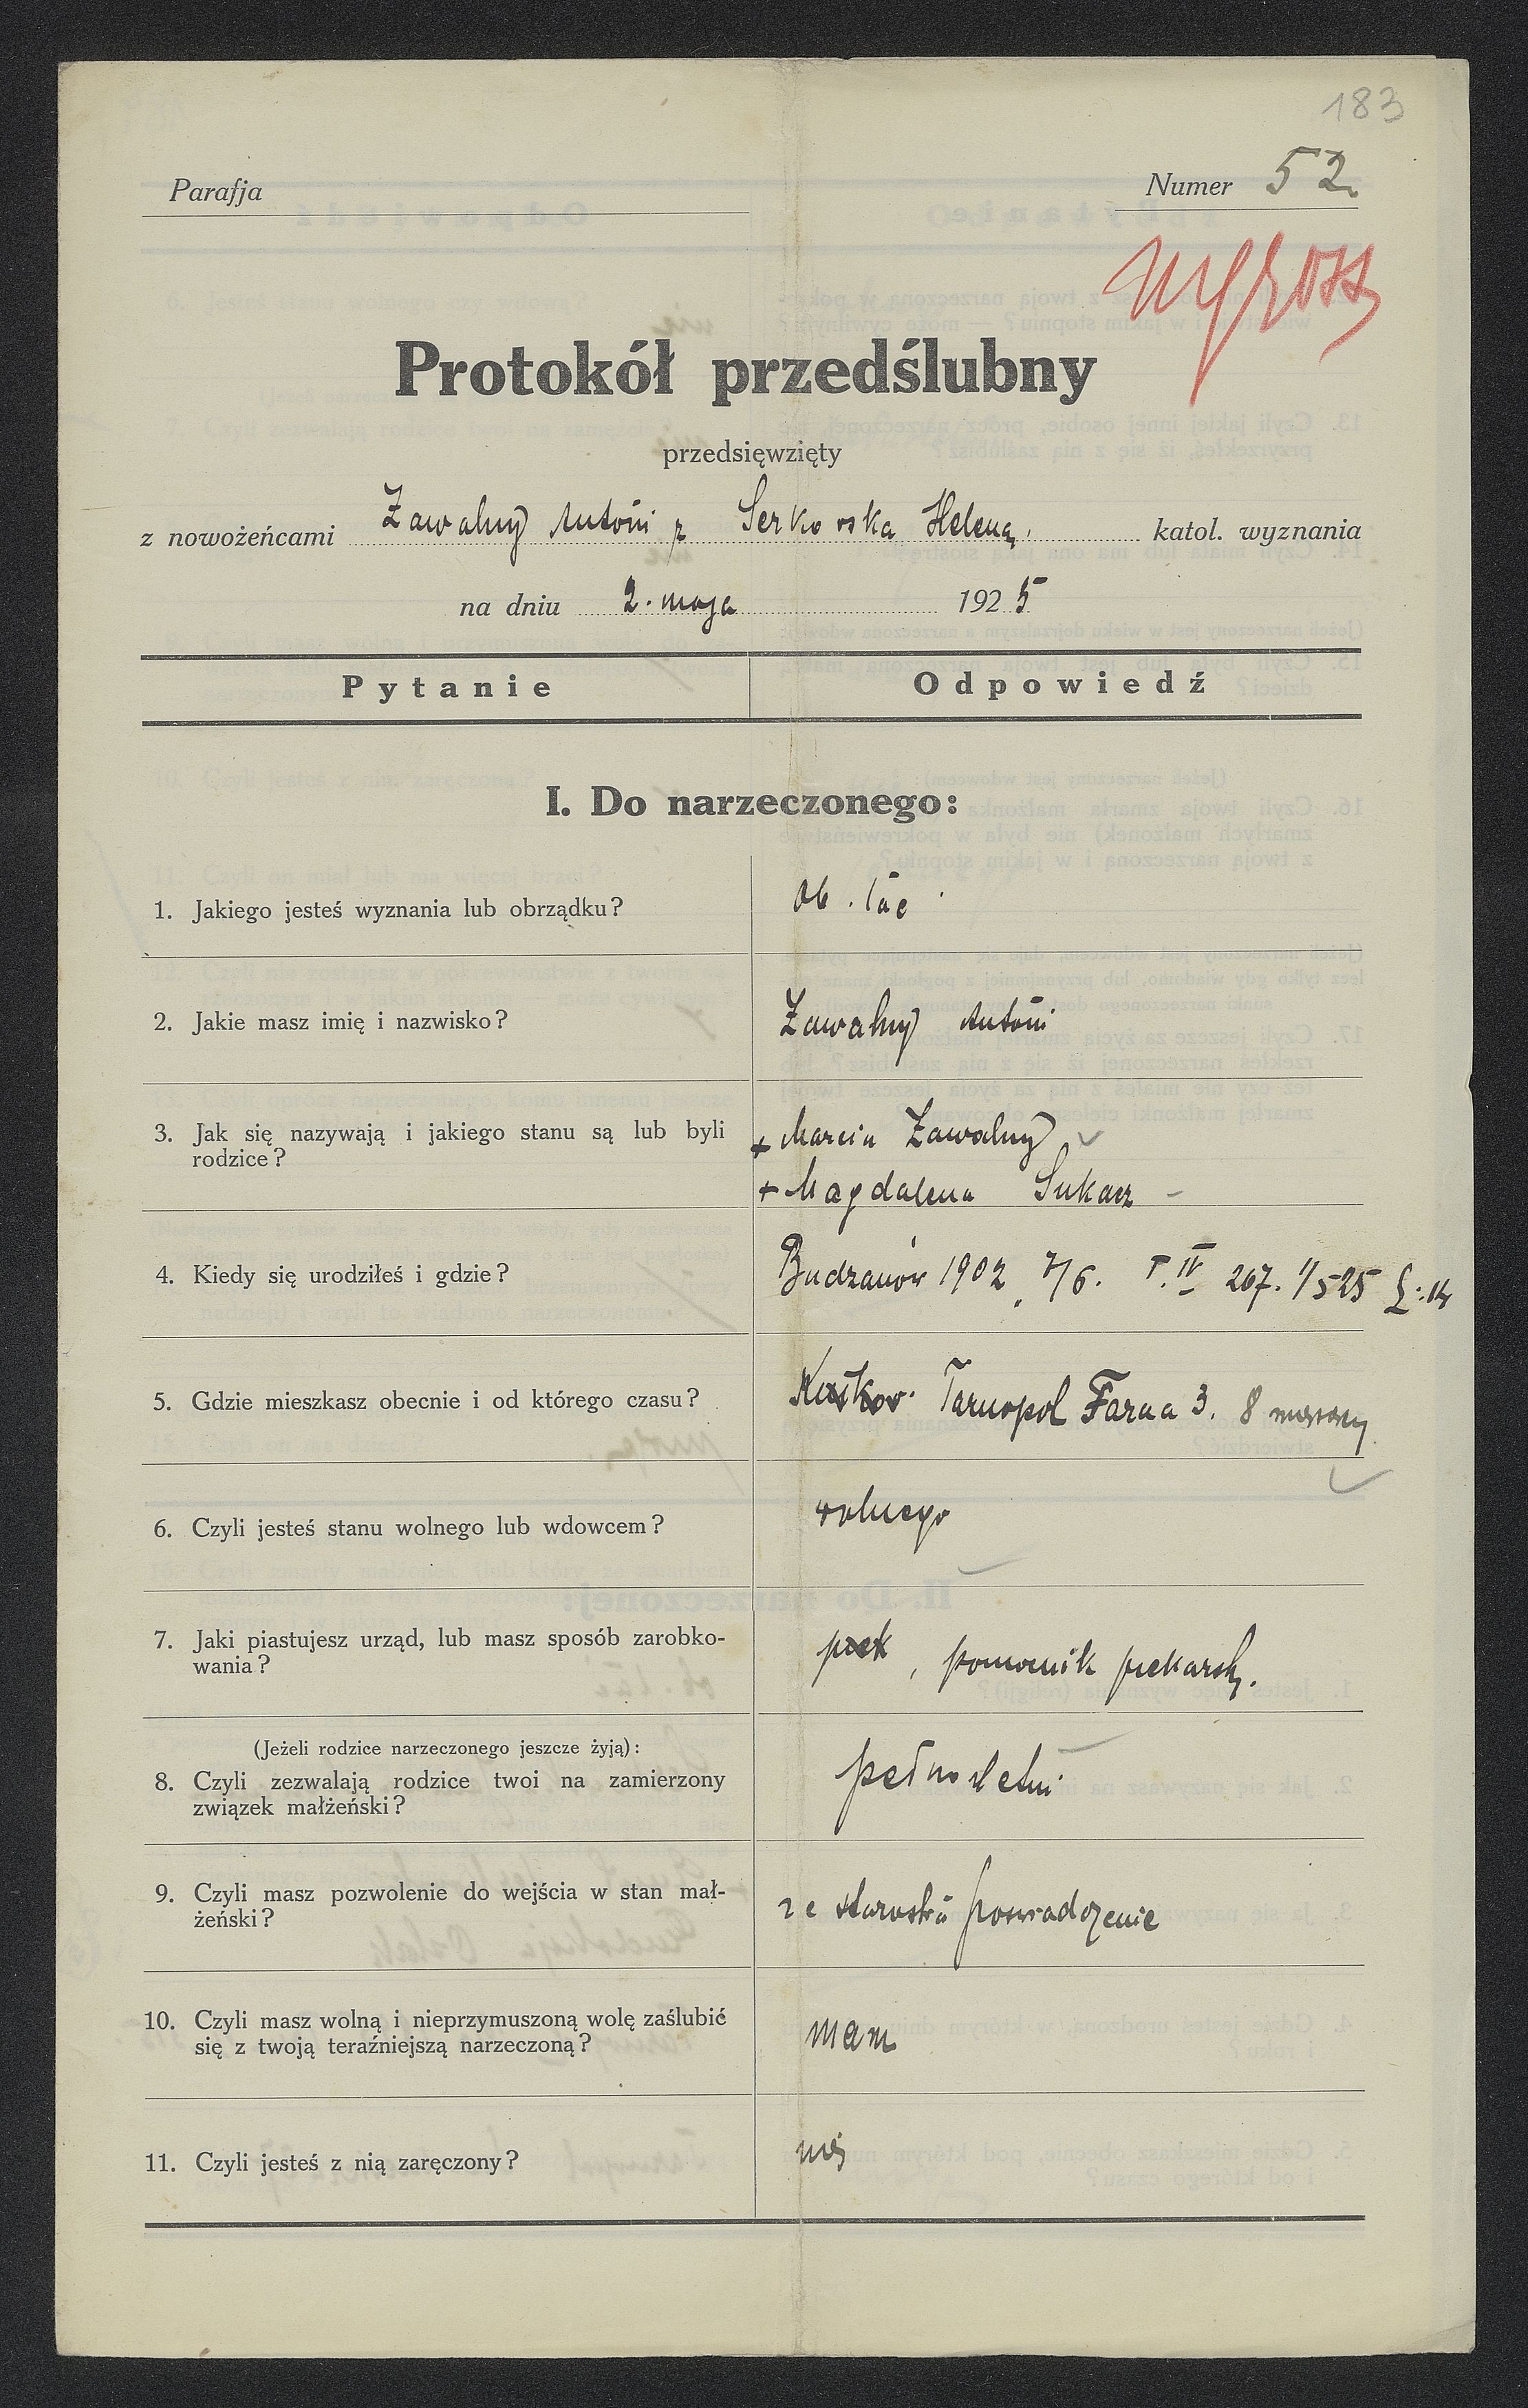 183
Parafja
Numer 52.
Protokół przedślubny
przedsięwzięty
z nowożeńcami Zawalny Antoni z Serkowska Heleną. katol. wyznania
na dniu 2. maja 1925
Pytanie Odpowiedź
I. Do narzeczonego:
1. Jakiego jesteś wyznania lub obrządku? ob. łac
2. Jakie masz imię i nazwisko? Zawalny Antoni
3. Jak się nazywają i jakiego stanu są lub byli
rodzice?
+ Marcin Zawalny
+ Magdalena Sukacz
4. Kiedy się urodziłeś i gdzie? Budzanów 1902, 7/6. T. IV 267.
5. Gdzie mieszkasz obecnie i od którego czasu? Tarnopol Farna 3. 8 miesięcy
6. Czyli jesteś stanu wolnego lub wdowcem? wolnego
7. Jaki piastujesz urząd, lub masz sposób zarobko-
wania?
piek, pomocnik piekarsk.
(Jeżeli rodzice narzeczonego jeszcze żyją):
8. Czyli zezwalają rodzice twoi na zamierzony
związek małżeński?
pełnoletni
9. Czyli masz pozwolenie do wejścia w stan mał-
żeński?
ze starostwa poswiadczenie
10. Czyli masz wolną i nieprzymuszoną wolę zaślubić
się z twoją teraźniejszą narzeczoną?
mam
11. Czyli jesteś z nią zaręczony? nie